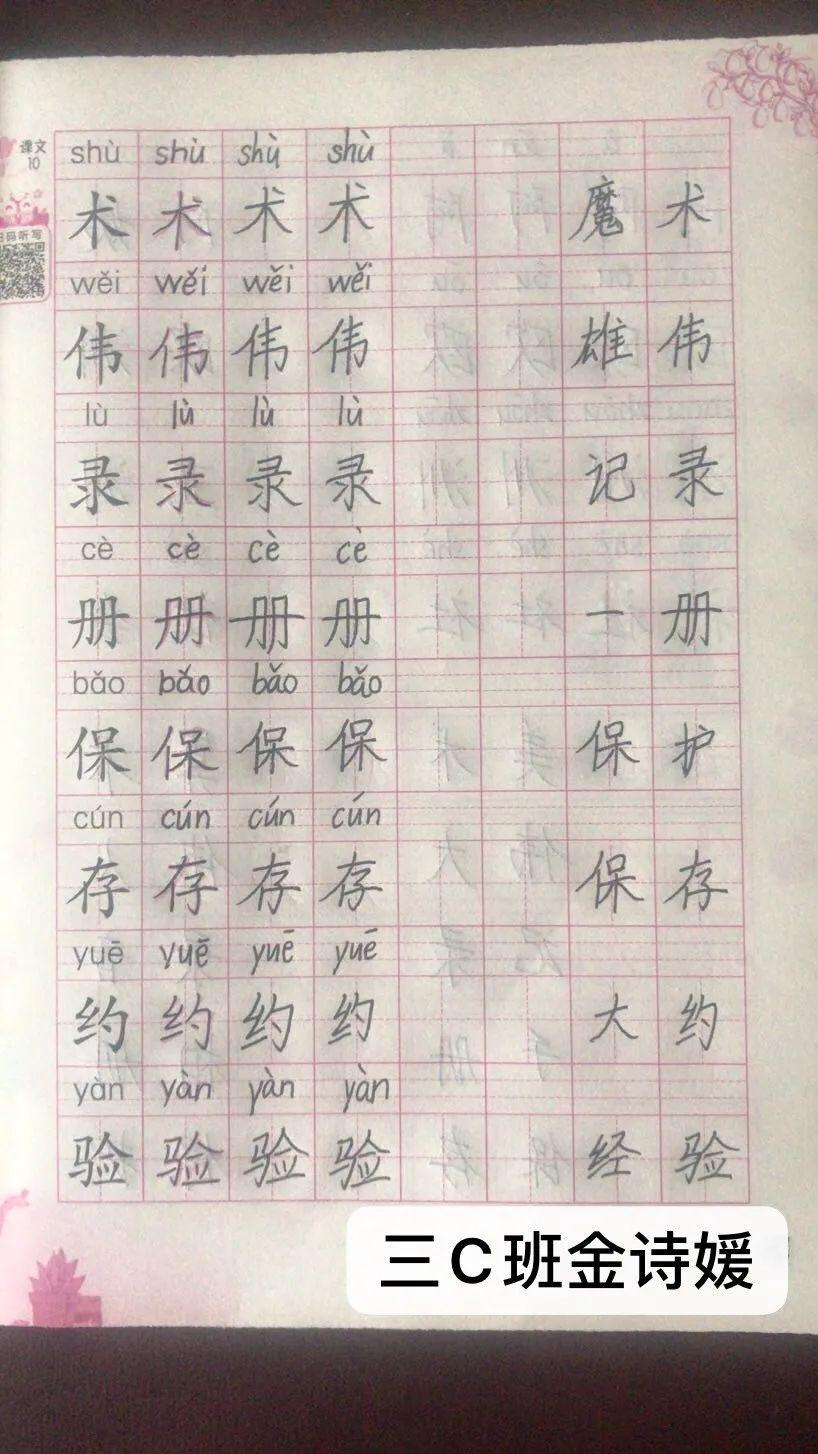 课文
10
扫码听写
shù shù shù shù
术 术 术 术 魔 术
wěi wěi wěi wěi
伟 伟 伟 伟 雄 伟
lù lù lù lù
录 录 录 录 记 录
cè cè cè cè
册 册 册 册 一 册
bǎo bǎo bǎo bǎo
保 保 保 保 保 护
cún cún cún cún
存 存 存 存 保 存
yuē yuē yuē yuē
约 约 约 约 大 约
yàn yàn yàn yàn
验 验 验 验 经 验
三C班金诗媛